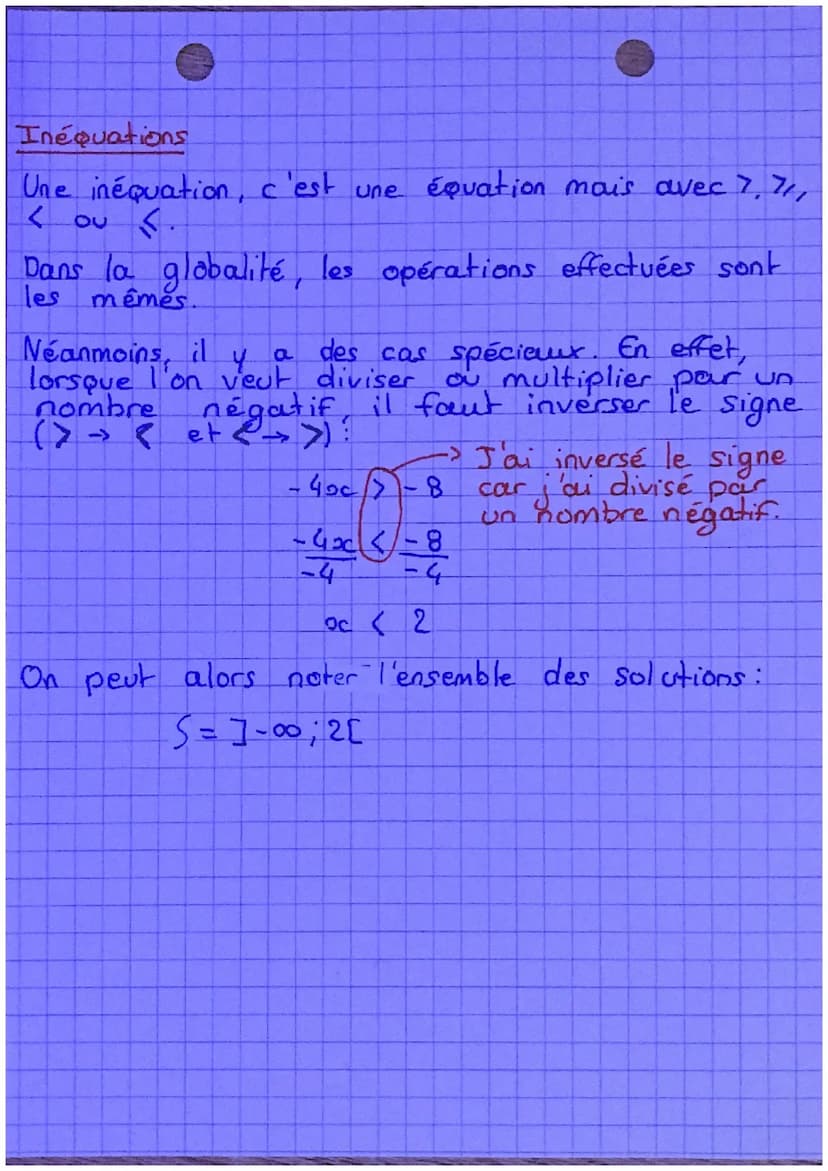 Inéquations
Une inéquation, c'est une équation mais avec >, ⩾,
< ou ⩽.
Dans la globalité, les opérations effectuées sont
les mêmes.
Néanmoins, il y a des cas spéciaux. En effet,
lorsque l'on veut diviser ou multiplier par un
nombre négatif, il faut inverser le signe
(> → < et < → >) :
→ J'ai inversé le signe
car j'ai divisé par
un nombre négatif.
-4x > -8
-4x/-4 < -8/-4
x < 2
On peut alors noter l'ensemble des solutions :
S = ]-∞ ; 2[